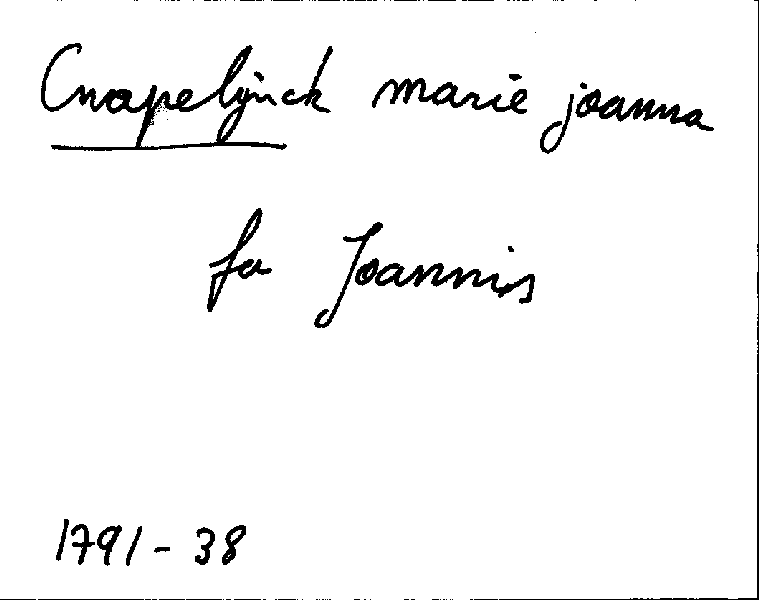 Cnapelynck marie joanna
fa Joannis
1791 - 38